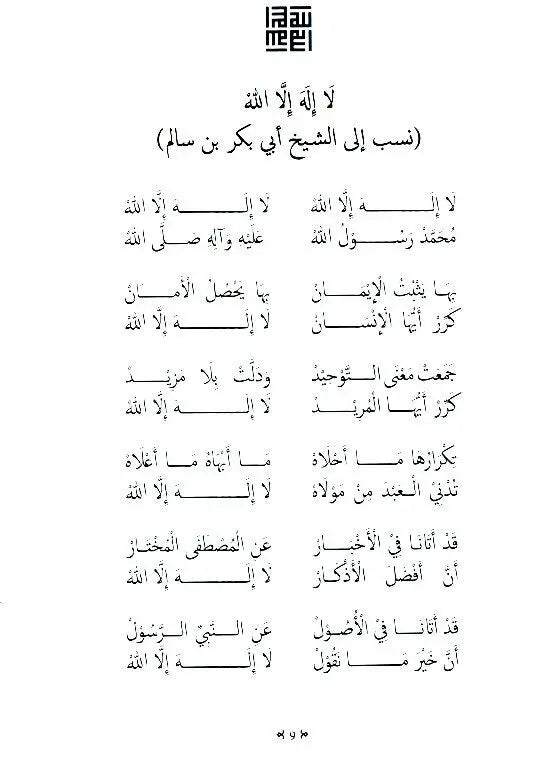 لَا إِلَهَ إِلَّا اللهُ
(نسب إلى الشيخ أبي بكر بن سالم)
لَا إِلَـــــــهَ إِلَّا اللهُ لَا إِلَـــــــهَ إِلَّا اللهُ
مُحَمَّدْ رَسُـــوْلُ اللهُ عَلَيْهِ وَآلِهِ صَـلَّى اللهُ
بِهَـا يَثْبُتُ الْإِيْمَـــانْ بِهَا يَحْصُلُ الْأَمَـانْ
كَرِّرْ أَيُّهَا الْإِنْسَـانْ لَا إِلَـــــــهَ إِلَّا اللهُ
جَمَعَتْ مَعْنَى الـتَّوْحِيْدْ وَدَلَّتْ بِلَا مَزِيْـدْ
كَرِّرْ أَيُّهَـا الْمُرِيْـدْ لَا إِلَـــــــهَ إِلَّا اللهُ
تِكْرَارُهَا مَـــا أَحْلَاهْ مَـا أَبْهَاهْ مَـا أَعْلَاهْ
تُدْنِيْ الْـعَبْدَ مِنْ مَوْلَاهْ لَا إِلَـــــــهَ إِلَّا اللهُ
قَدْ أَتَانَـا فِيْ الْأَخْبَـارْ عَنِ الْمُصْطَفَى الْمُخْتَـارْ
أَنَّ أَفْضَلَ الْأَذْكَـارْ لَا إِلَـــــــهَ إِلَّا اللهُ
قَدْ أَتَانَـــا فِيْ الْأُصُوْلْ عَنِ الـنَّبِيِّ الـرَّسُوْلْ
أَنَّ خَيْرَ مَـــا نَقُوْلْ لَا إِلَـــــــهَ إِلَّا اللهُ
٩